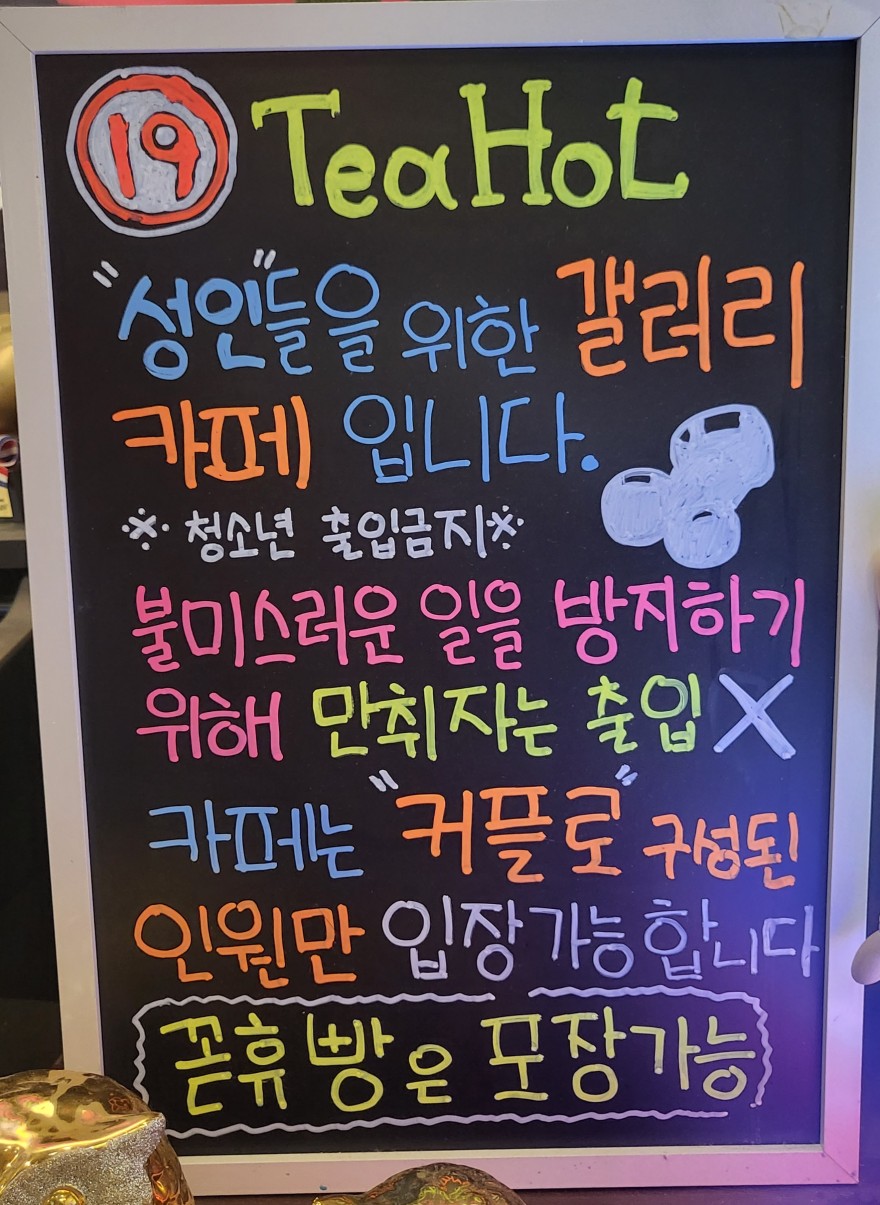 19 TeaHot
"성인"들을 위한 갤러리
카페 입니다.
※ 청소년 출입금지※
불미스러운 일을 방지하기
위해 만취자는 출입 X
카페는 "커플로" 구성된
인원만 입장가능합니다
꼳휴빵은 포장가능